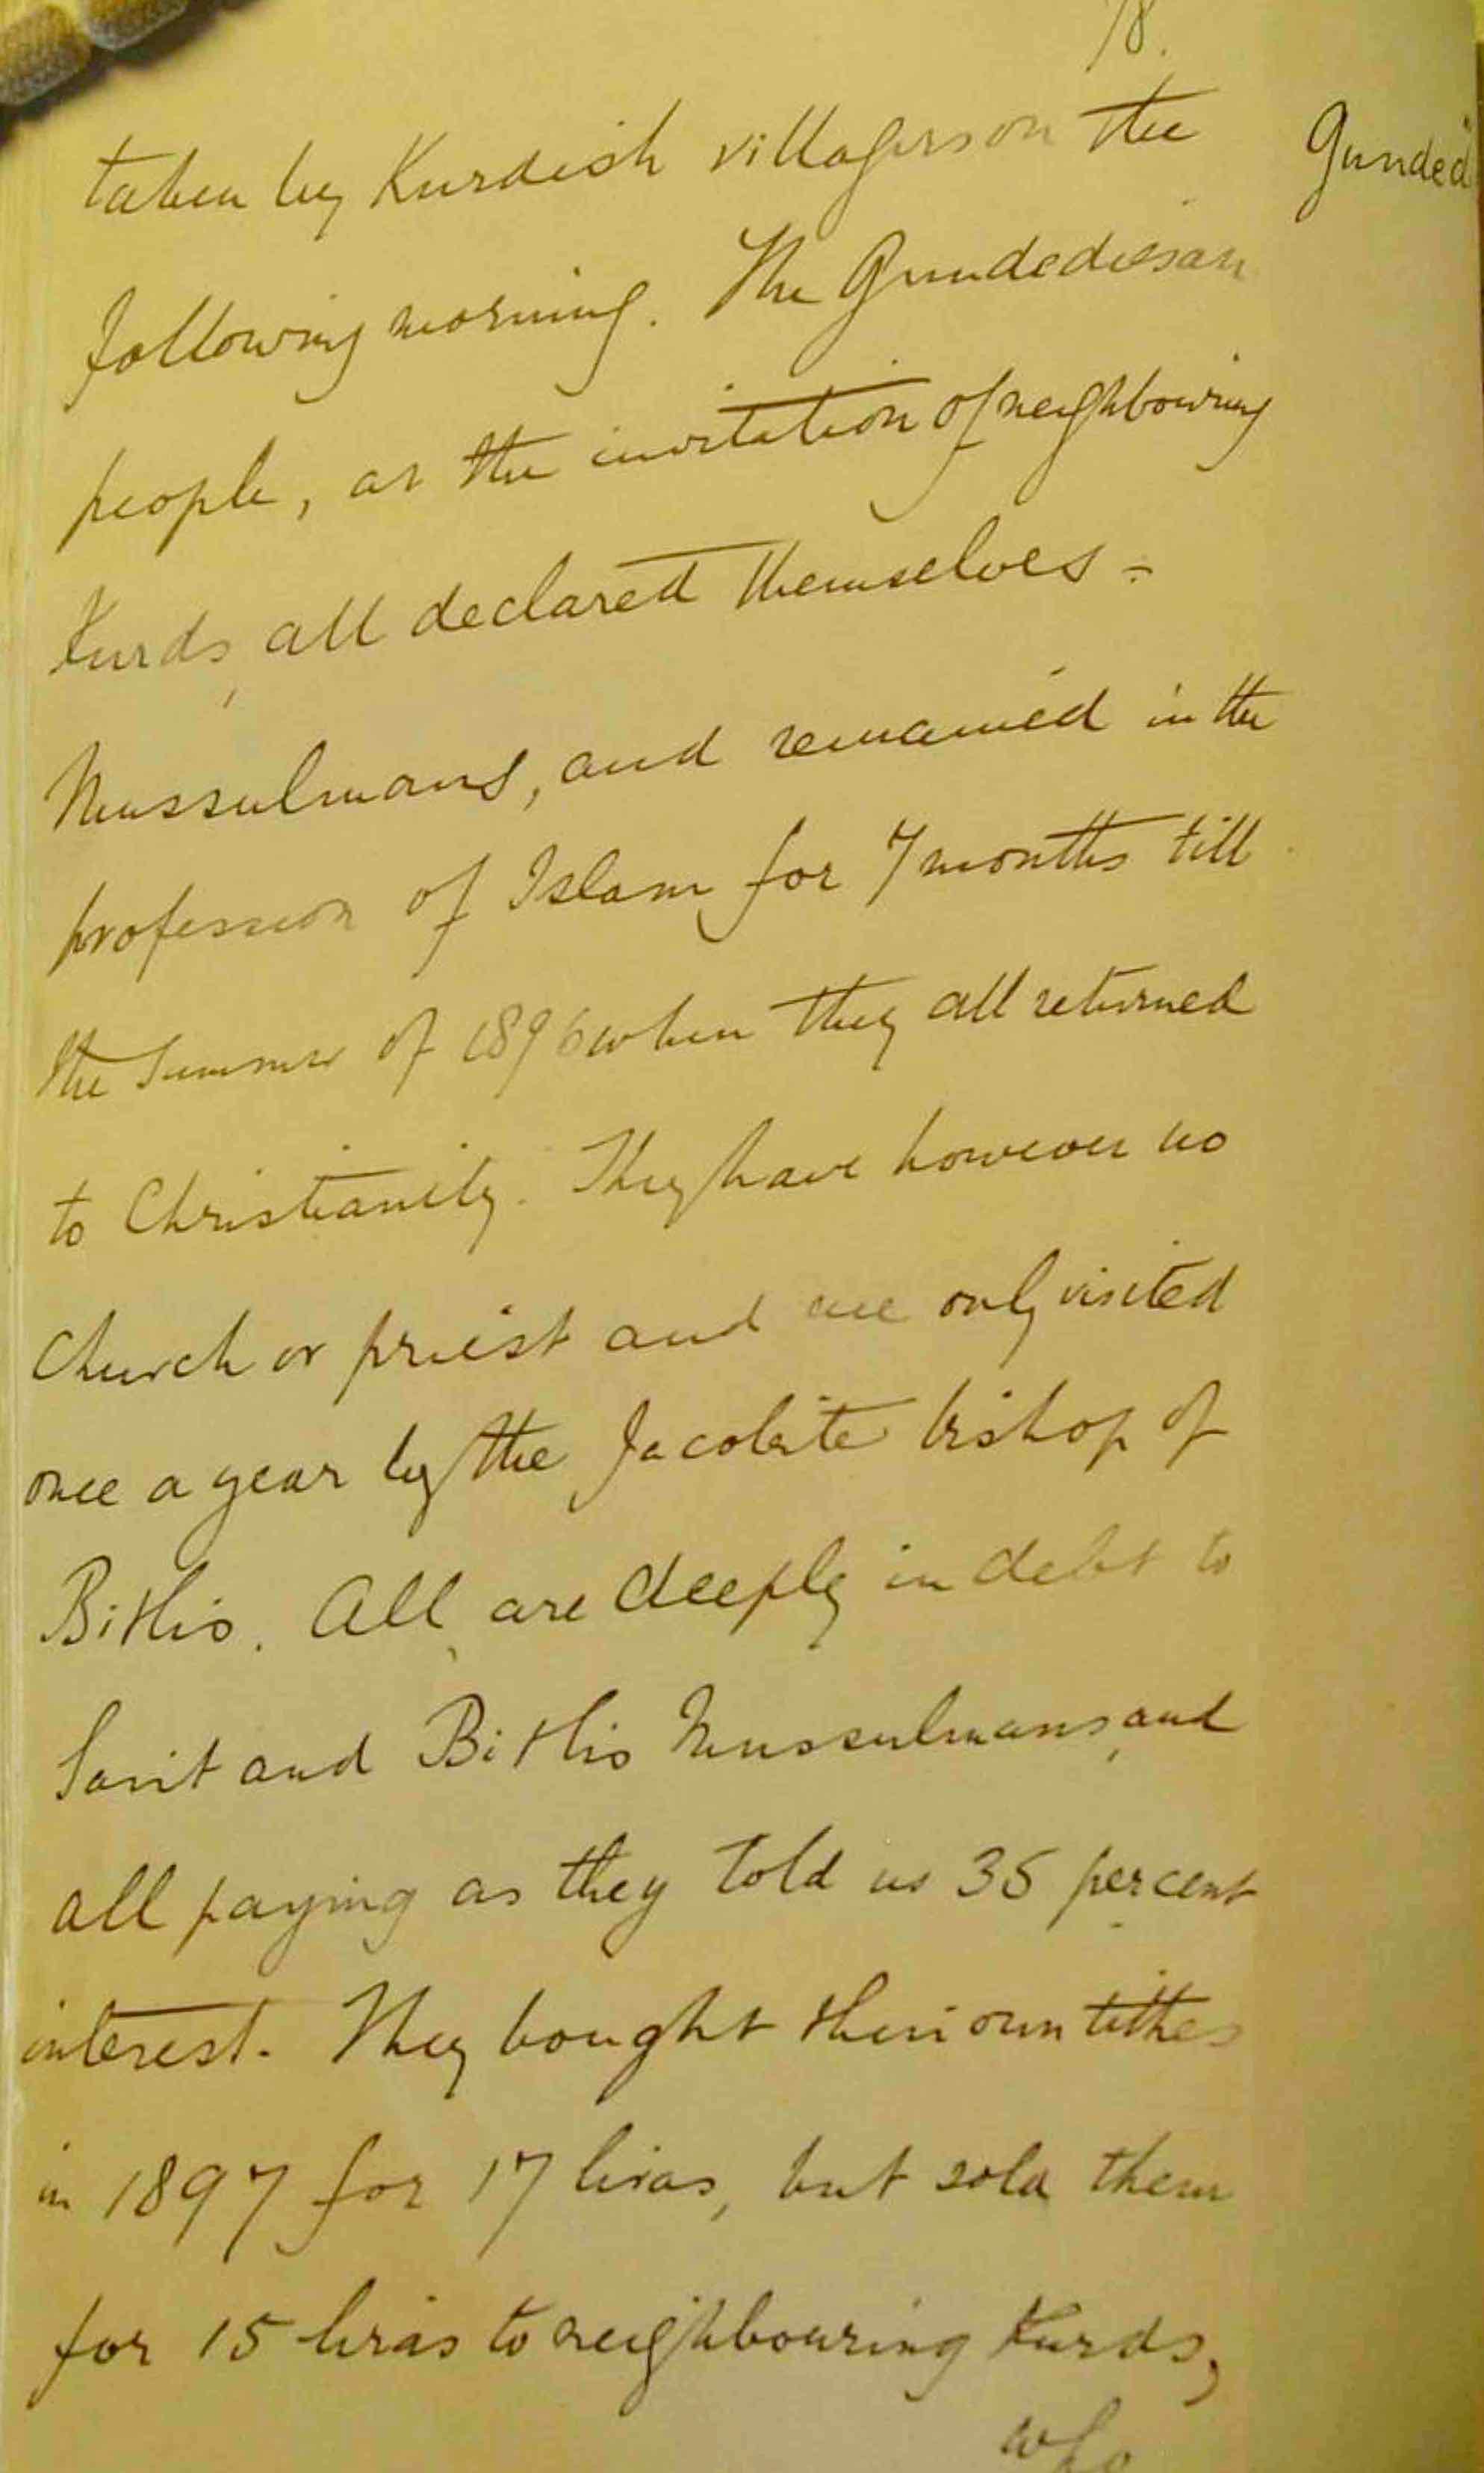 18.
taken by Kurdish villagers on the
Gunded
following morning. The Gundedeesan
people, at the invitation of neighbouring
Kurds, all declared themselves -
Mussulmans, and remained in the
profession of Islam for 7 months till
the Summer of 1896 when they all returned
to Christianity. They have however no
Church or priest and are only visited
once a year by the Jacobite bishop of
Bitlis. All are deeply in debt to
and Bitlis Mussulmans, and
all paying as they told us 35 per cent
interest. They bought their own tithes
in 1897 for 17 liras, but sold them
for 15 liras to neighbouring Kurds,
who